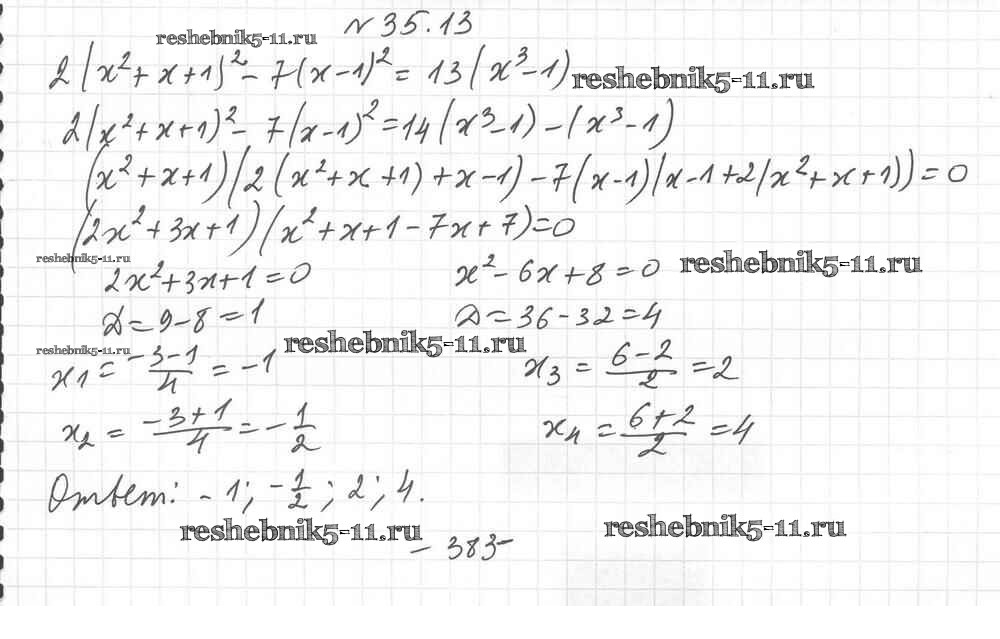 № 35.13
reshebnik5-11.ru
2(x²+x+1)²-7(x-1)²=13(x³-1)
reshebnik5-11.ru
2(x²+x+1)²-7(x-1)²=14(x³-1)-(x³-1)
(x²+x+1)(2(x²+x+1)+x-1)-7(x-1)(x-1+2(x²+x+1))=0
(2x²+3x+1)(x²+x+1-7x+7)=0
reshebnik5-11.ru
2x²+3x+1=0 x²-6x+8=0 reshebnik5-11.ru
D=9-8=1 D=36-32=4
reshebnik5-11.ru reshebnik5-11.ru
x₁=(-3-1)/4=-1 x₃=(6-2)/2=2
x₂=(-3+1)/4=-1/2 x₄=(6+2)/2=4
Ответ: -1; -1/2; 2; 4.
reshebnik5-11.ru reshebnik5-11.ru
- 383 -